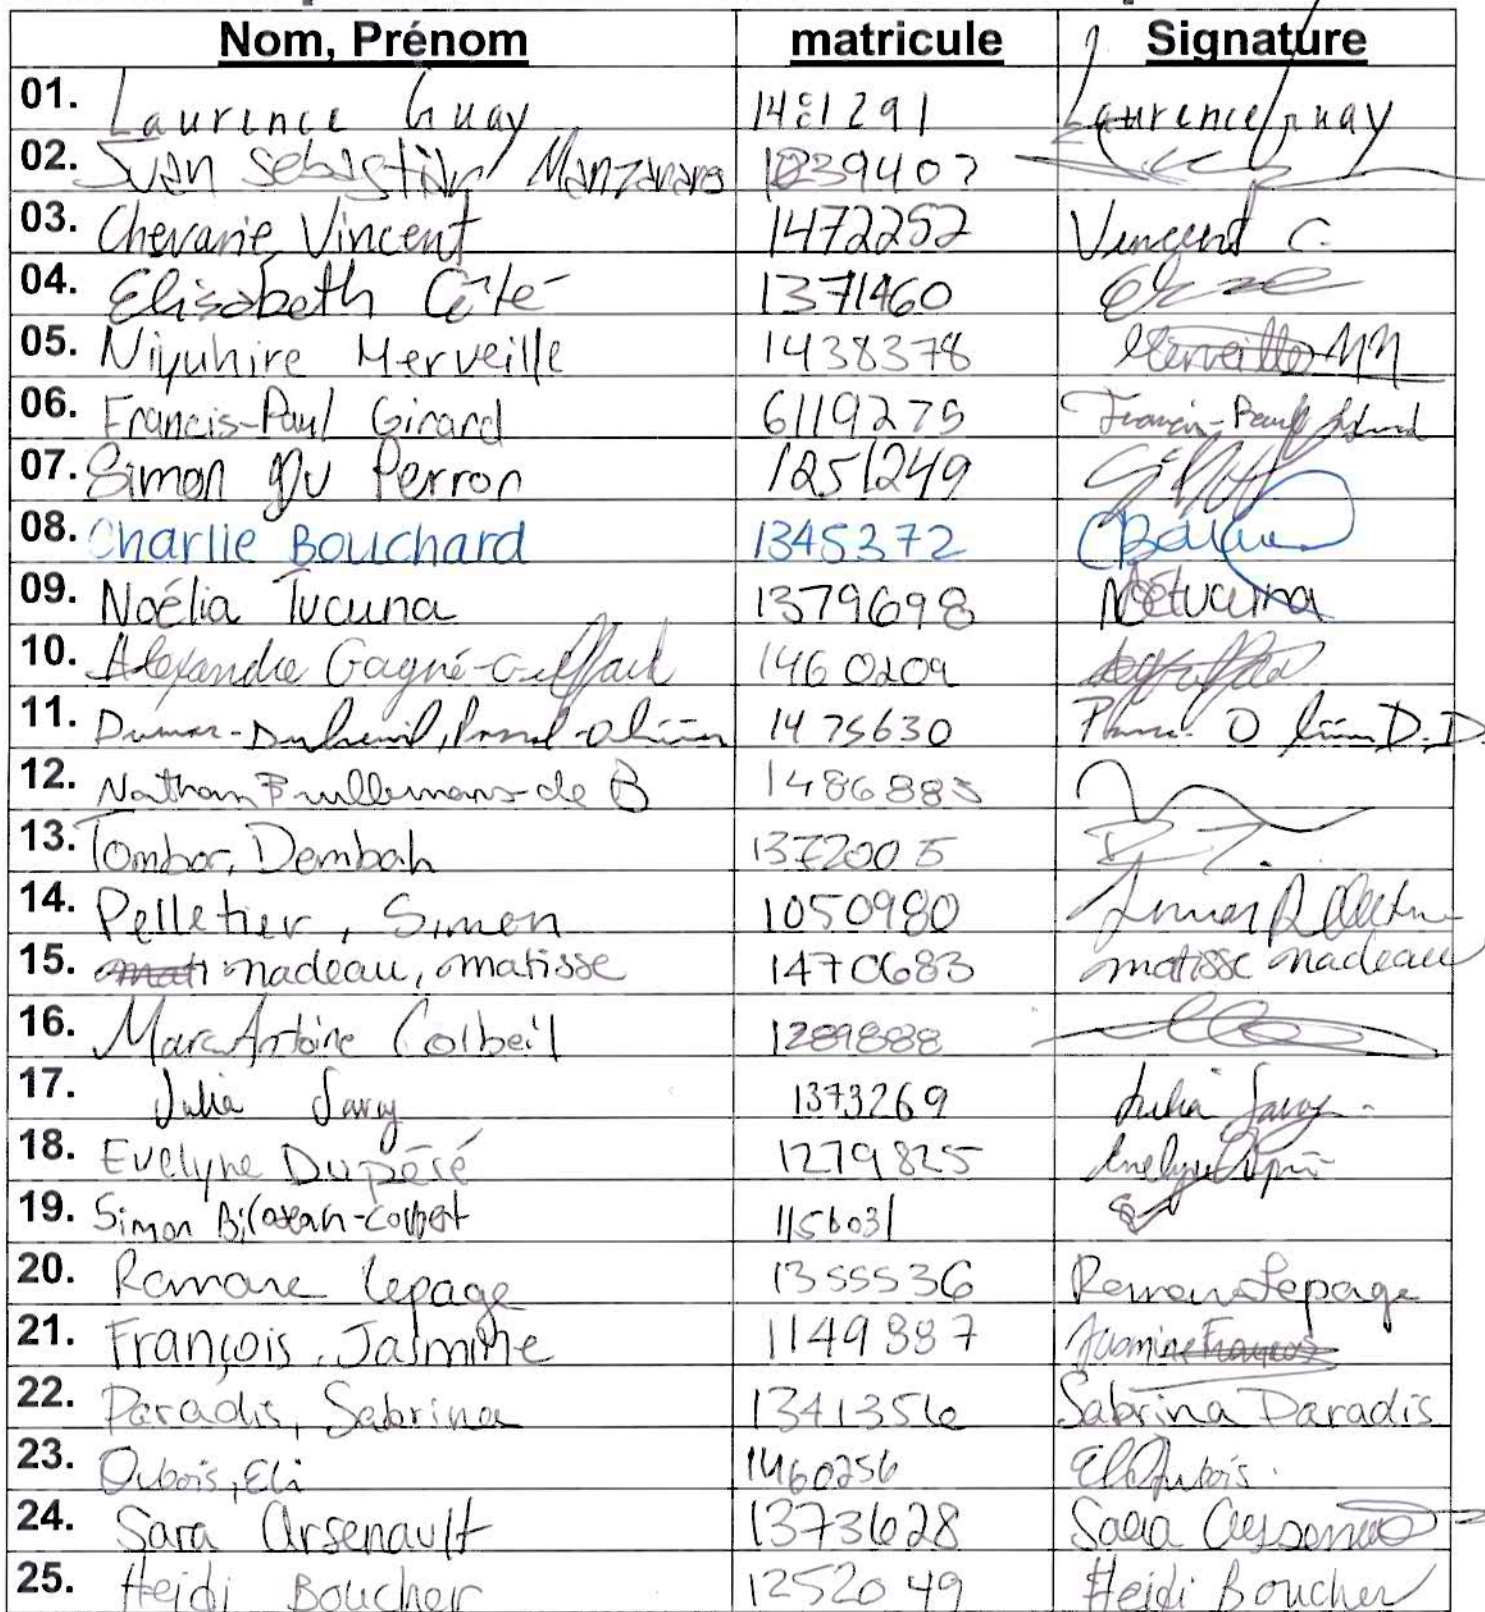 Nom, Prénom matricule Signature
01. Laurence Guay 1481291 Laurence Guay
02. Juan Sebastian Manzanares 1239407
03. Chevarie, Vincent 1472252 Vincent C.
04. Elisabeth Côté 1371460
05. Niyuhire Merveille 1438378 Merveille
06. Francis-Paul Girard 6119275 Francis-Paul Girard
07. Simon Du Perron 1251249
08. Charlie Bouchard 1345372
09. Noélia Tucuna 1379698 Noétucuna
10. Alexandre Gagné- 1460209
11. Dumas-Dubreuil, 1475630 D.D.
12. Nathan de B 1486885
13. Tombar, Dembah 1372005 D.T.
14. Pelletier, Simon 1050980 Simon Pelletier
15. nadeau, matisse 1470683 matisse nadeau
16. Marc-Antoine Corbeil 1289888
17. Julia Savy 1373269 Julia Savy
18. Evelyne Dupéré 1279825 Evelyne
19. Simon 1156031
20. Romane Lepage 1355536 Romane Lepage
21. François, Jasmine 1149887 Jasmine François
22. Paradis, Sabrina 1341356 Sabrina Paradis
23. Dubois, Eli 1460256 Eli Dubois
24. Sara Arsenault 1373628 Sara Arsenault
25. Heidi Boucher 1252049 Heidi Boucher